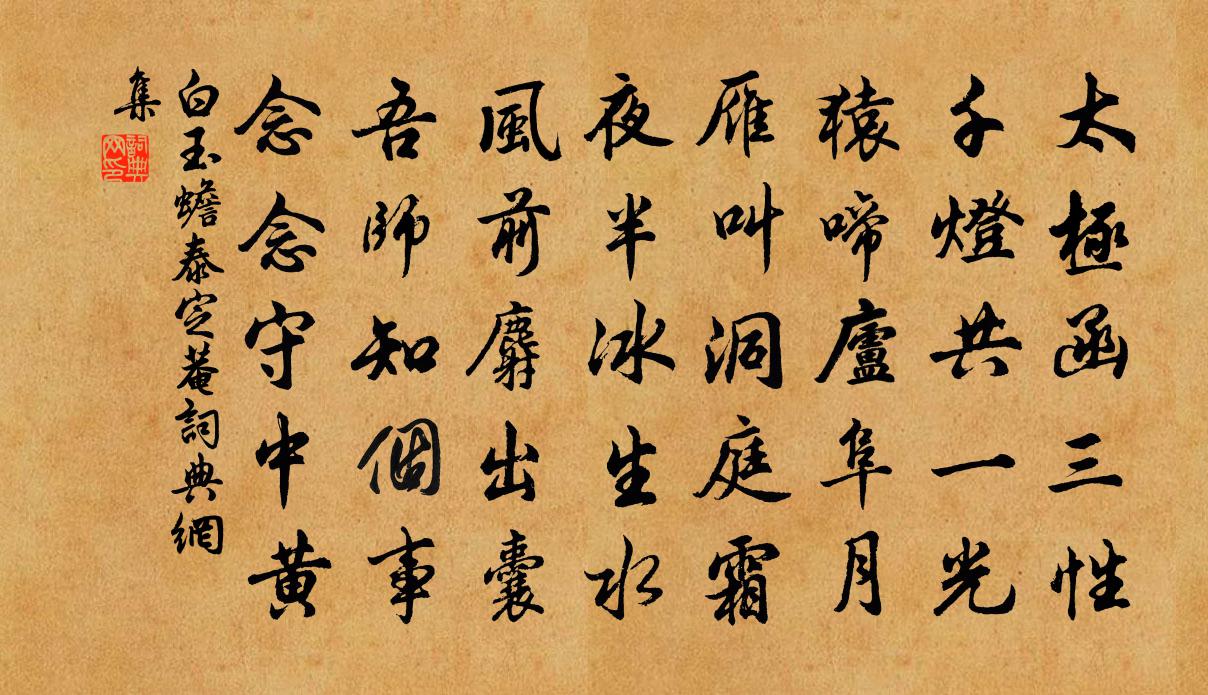 太極函三性
千燈共一光
猿啼廬阜月
雁叫洞庭霜
夜半冰生水
風前麝出囊
吾師知個事
念念守中黃
白玉蟾泰定菴詞典網
集
詞典
网印